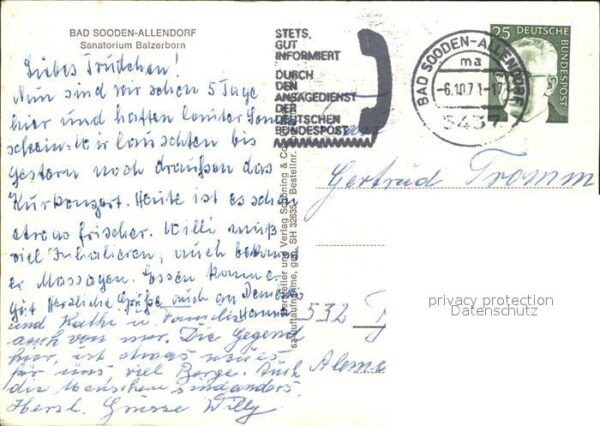 BAD SOODEN-ALLENDORF
Sanatorium Balzerborn
Liebes Trudchen!
Nun sind wir schon 5 Tage
hier und hatten lauter Sonnen
schein. Wir lauschten bis
Gestern noch draußen das
Kurkonzert. Heute ist es schon
etwas frischer. Willi muß
viel Inhalieren, auch bekommt
er Massagen. Essen
gut Herzliche Grüße auch an
und Käthe u. Familie
auch von mir. Die Gegend
hier, ist etwas neues
für uns viel Berge. Auch
die Menschen sind anders.
Herzl. Grüsse Willy
STETS
GUT
INFORMIERT
DURCH
DEN
ANSAGEDIENST
DER
DEUTSCHEN
BUNDESPOST
BAD SOODEN-ALLENDORF
ma
-6.10.71-17
3437
25
DEUTSCHE
BUNDESPOST
Hersteller und Verlag Schöning & Co
Bestellnr.
Gertrud Tromm
532
privacy protection
Datenschutz